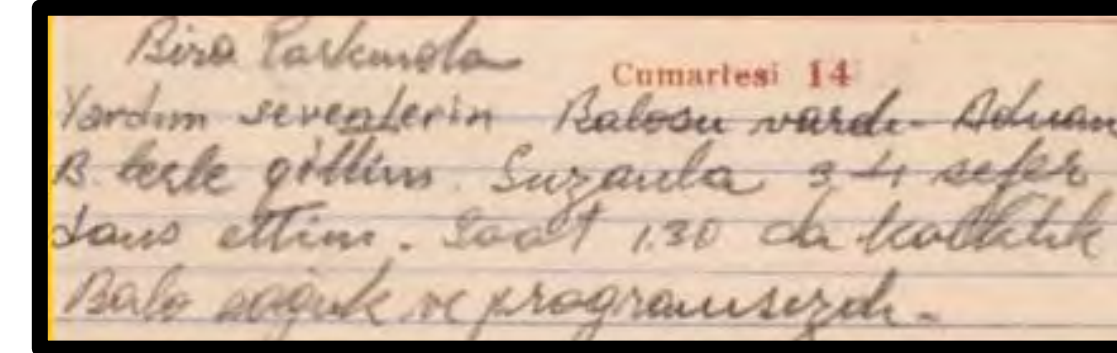 Bira Parkında
Cumartesi 14
Yardım sevenlerin Balosu vardı - Adnan
B. beyle gittim. Suzanla 3-4 sefer
dans ettim. Saat 1.30 da kalktık
Balo soğuk ve programsızdı -